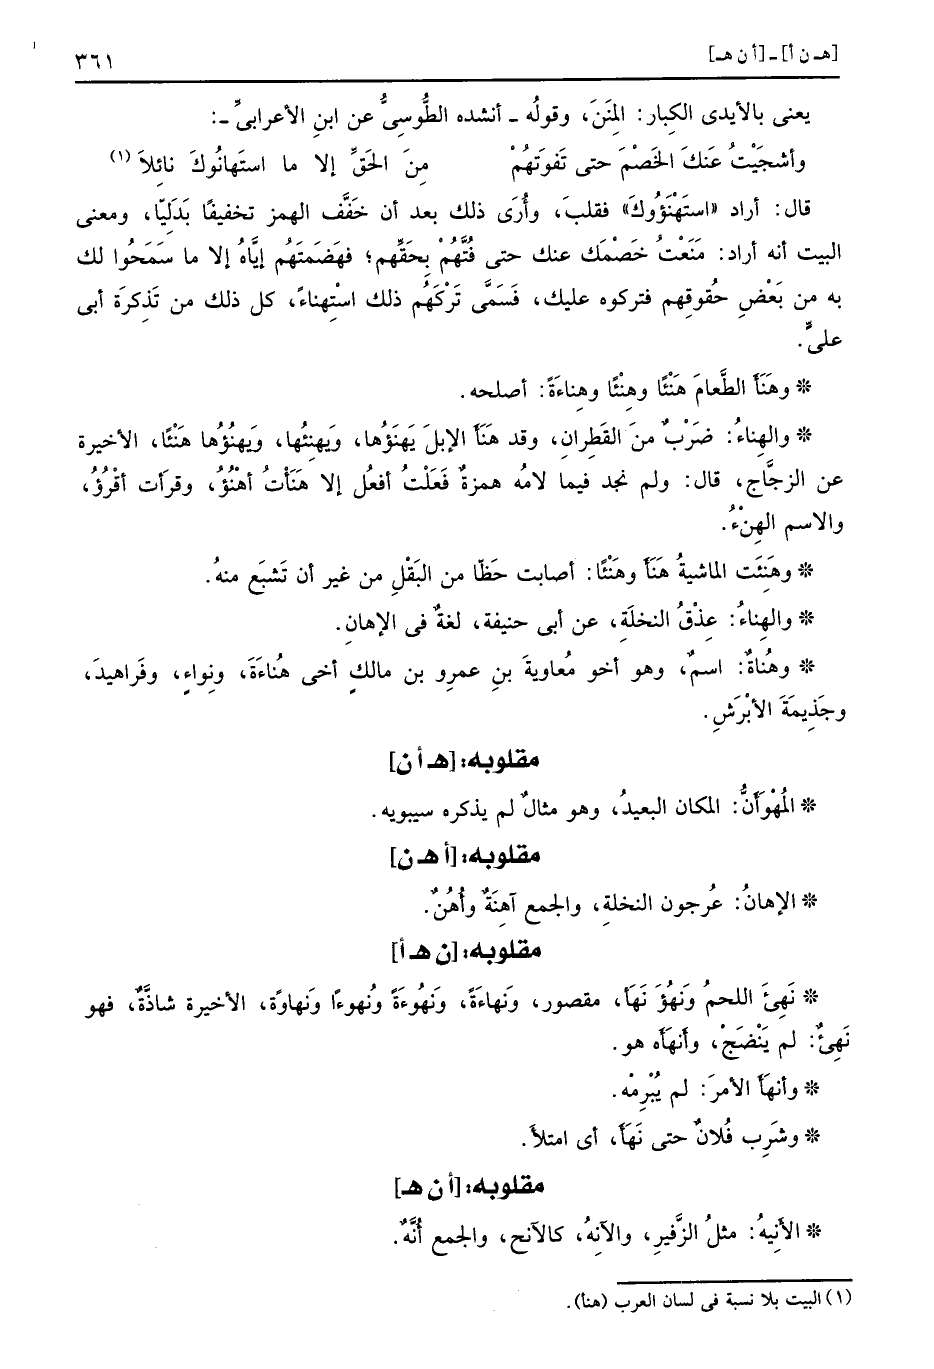 [هـ ن أ] ـ [أ ن هـ]
٣٦١
يعنى بالأيدى الكبار: المِنَنَ، وقولُه ـ أنشده الطُّوسِىُّ عن ابنِ الأعرابىِّ ـ:
وأشجَيْتُ عَنكَ الخَصْمَ حتى تَفوَتَهُمْ مِنَ الحَقِّ إلا ما استَهانُوكَ نائلاَ (١)
قال: أراد «استَهْنَؤُوكَ» فقلبَ، وأُرَى ذلك بعد أن خَفَّفَ الهمز تخفيفًا بَدَليّا، ومعنى
البيت أنه أراد: مَنَعْتُ خَصْمَك عنك حتى فُتَّهُمْ بِحَقِّهِم؛ فهَضَمتَهُم إيَّاهُ إلا ما سَمَحُوا لك
به من بَعْضِ حُقوقِهم فتركوه عليك، فَسَمَّى تَرْكَهُم ذلك اسْتِهناءً، كل ذلك من تَذكِرَة أبى
علىٍّ.
❊ وهَنَأ الطَّعامَ هَنْئًا وهِنْئًا وهِناءَةً: أصلحه.
❊ والهِناءُ: ضَرْبٌ منَ القَطِران، وقد هَنَأ الإبلَ يَهنَؤُها، ويَهنِئُها، ويَهنُؤُها هَنْئًا، الأخيرة
عن الزجَّاج، قال: ولم نجد فيما لامُه همزةٌ فَعَلْتُ أفعُل إلا هَنَأْتُ أهْنُؤُ، وقرأت أقْرُؤُ،
والاسم الهِنْءُ.
❊ وهَنِئَت الماشيةُ هَنَأ وهَنْئًا: أصابت حَظّا من البَقْلِ من غير أن تَشبَع منهُ.
❊ والهِناءُ: عِذْقُ النخلَة، عن أبى حنيفة، لغةٌ فى الإهانِ.
❊ وهُناةٌ: اسمٌ، وهو أخو مُعاويةَ بنِ عمرِو بن مالكٍ أخى هُناءَةَ، ونِواءٍ، وفَراهيدَ،
وجَذِيمَةَ الأبْرَشِ.
مقلوبه: [هـ أ ن]
❊ المُهْوَأَنُّ: المكان البعيدُ، وهو مثالٌ لم يذكره سيبويه.
مقلوبه: [أ هـ ن]
❊ الإهانُ: عُرجون النخلةِ، والجمع آهِنَةٌ وأُهُنٌ.
مقلوبه: [ن هـ أ]
❊ نَهِئَ اللحمُ ونَهُؤَ نَهَأ، مقصور، ونَهاءَةً، ونَهُوءَةً ونُهوءًا ونَهاوَة، الأخيرة شاذَّةٌ، فهو
نَهِئٌ: لم يَنْضَجْ، وأنهَأه هو.
❊ وأنهَأ الأمرَ: لم يُبْرِمْه.
❊ وشَرِب فُلانٌ حتى نَهَأ، أى امتلأ.
مقلوبه: [أ ن هـ]
❊ الأَنِيهُ: مثلُ الزَّفيرِ، والآنِهُ، كالآنح، والجمع أُنَّهٌ.
(١) البيت بلا نسبة فى لسان العرب (هنأ).